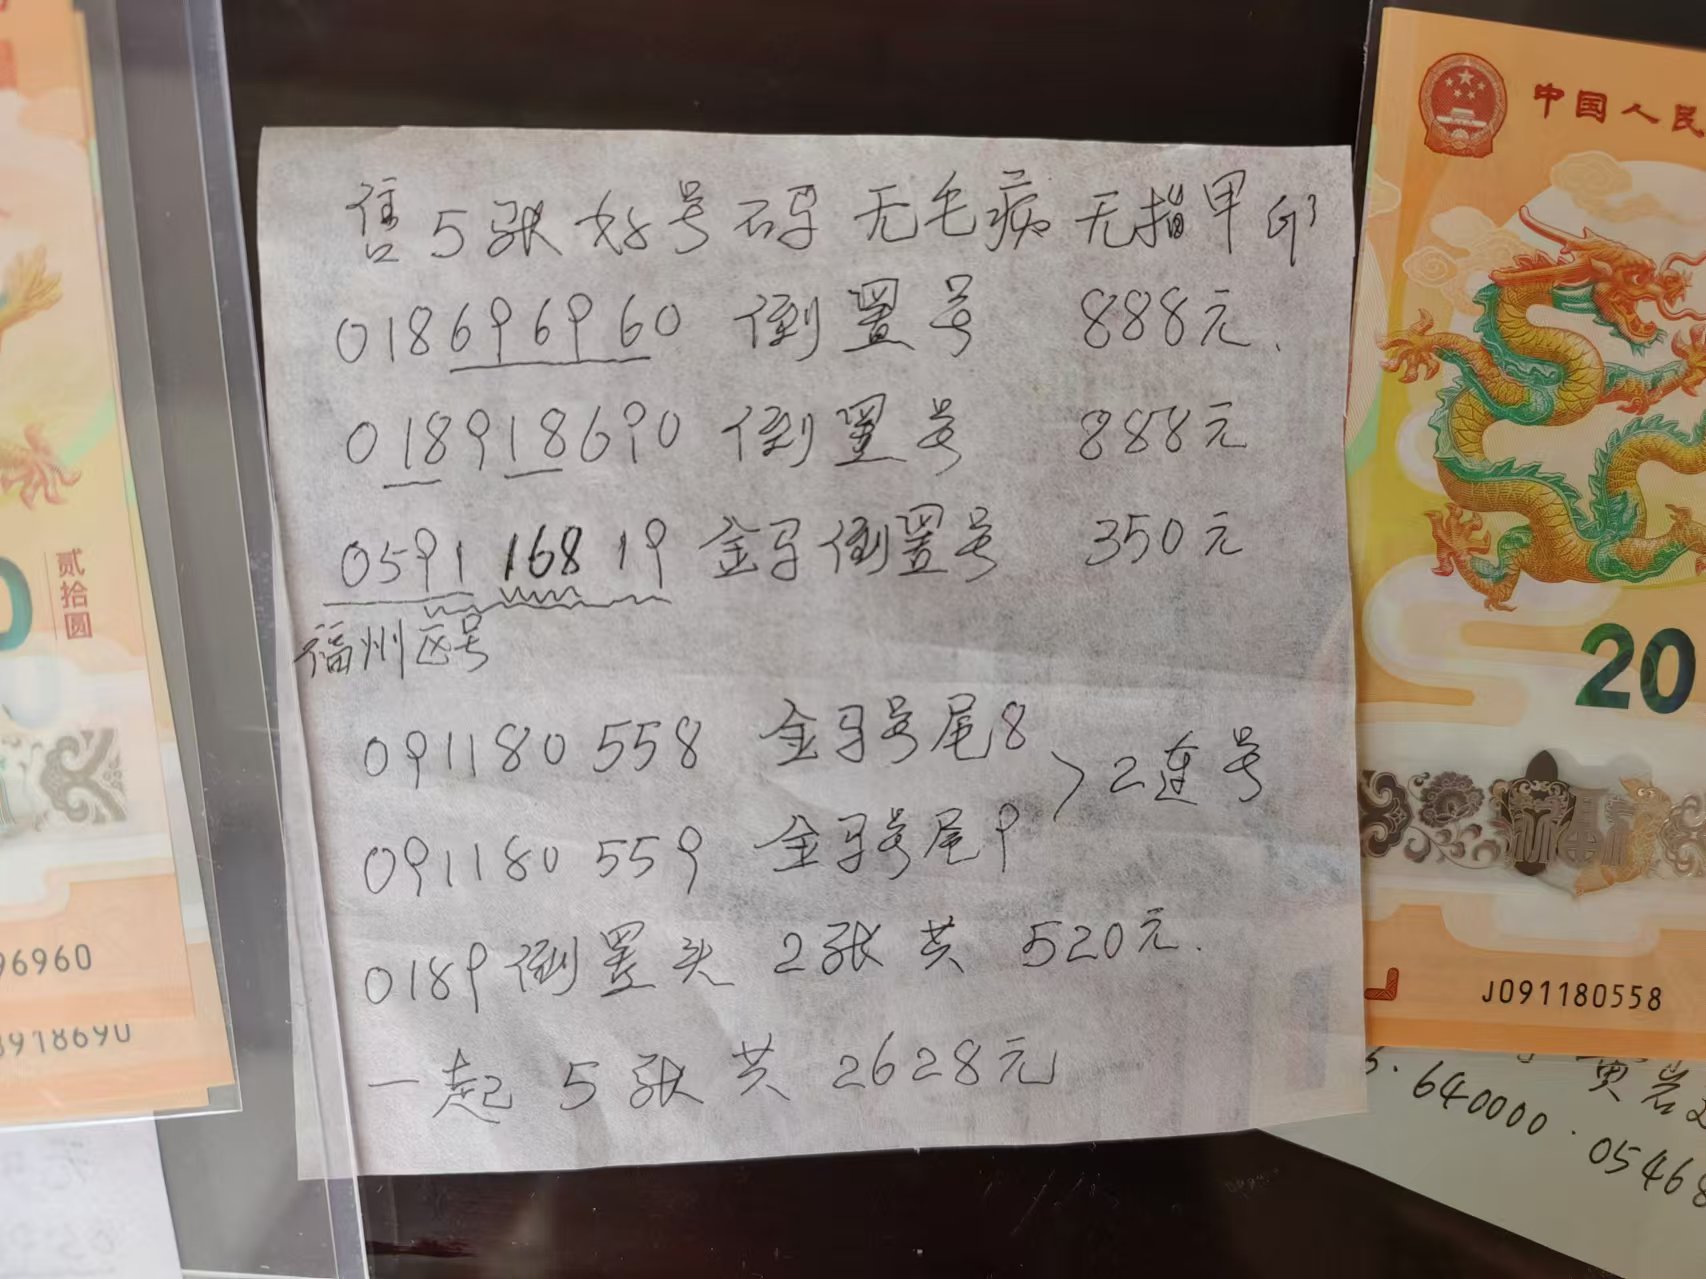 售5张好号码 无毛病 无指甲印
018696960 倒置号 888元.
018918690 倒置号 888元
059116819 金马倒置号 350元
福州区号
091180558 金马号尾8
>2连号
091180559 金马号尾9
0189倒置头 2张共 520元.
一起 5张共 2628元
96960
91869U
贰拾圆
0
中国人民
20
J091180558
黄岩
640000.05468